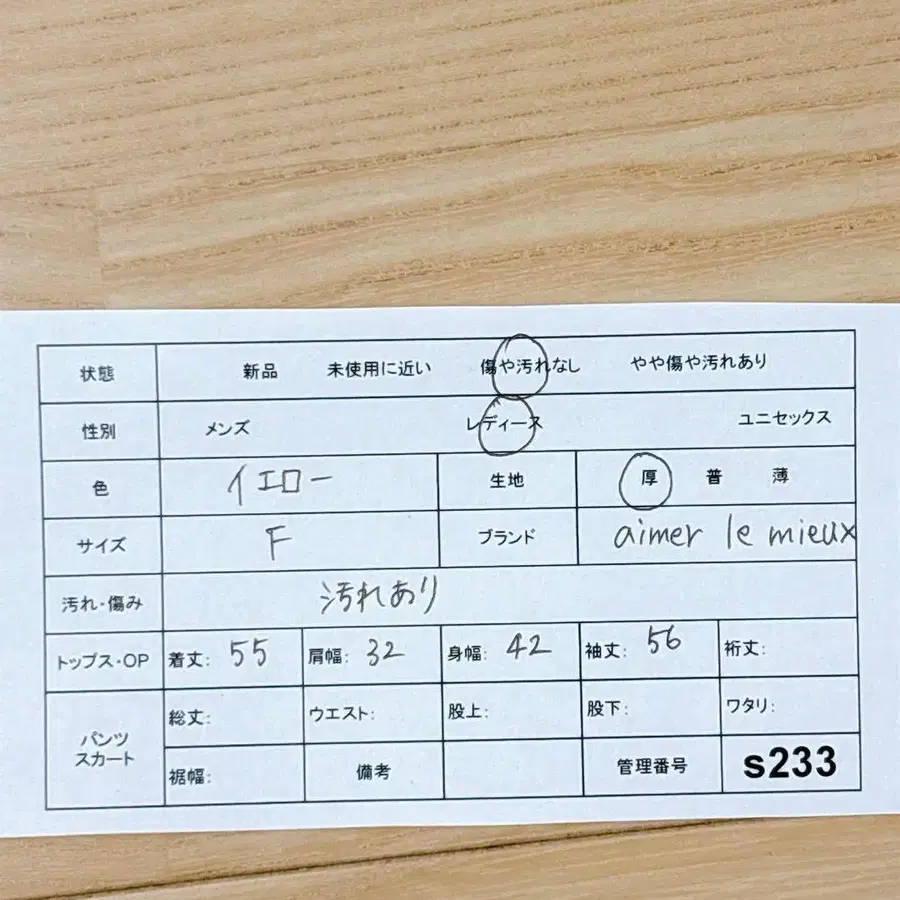 状態 新品 未使用に近い 傷や汚れなし やや傷や汚れあり
性別 メンズ レディース ユニセックス
色 イエロー 生地 厚 普 薄
サイズ F ブランド aimer le mieux
汚れ・傷み 汚れあり
トップス・OP 着丈: 55 肩幅: 32 身幅: 42 袖丈: 56 裄丈:
パンツ スカート 総丈: ウエスト: 股上: 股下: ワタリ:
裾幅: 備考 管理番号 s233